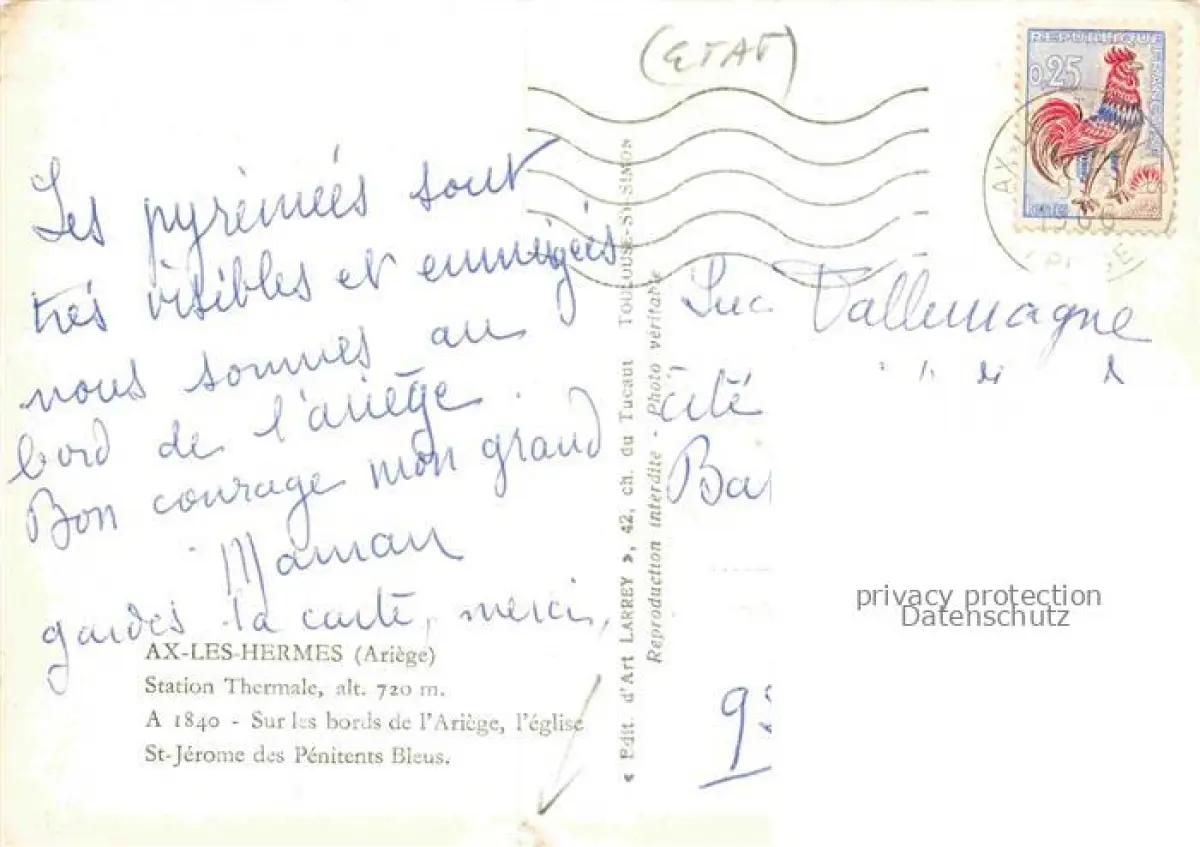 (ETAT)
REPUBLIQUE FRANÇAISE
0,25
Les pyrénées sont
très visibles et enneigées
nous sommes au
bord de l'ariège.
Bon courage mon grand
Maman
gardes la carte, merci,
AX-LES-HERMES (Ariège)
Station Thermale, alt. 720 m.
A 1840 - Sur les bords de l'Ariège, l'église
St-Jérome des Pénitents Bleus.
« Edit. d'Art LARREY », 42, ch. du Tucaut TOULOUSE-St-SIMON
Reproduction interdite - Photo véritable
Luc Vallemagne
cité
privacy protection
Datenschutz